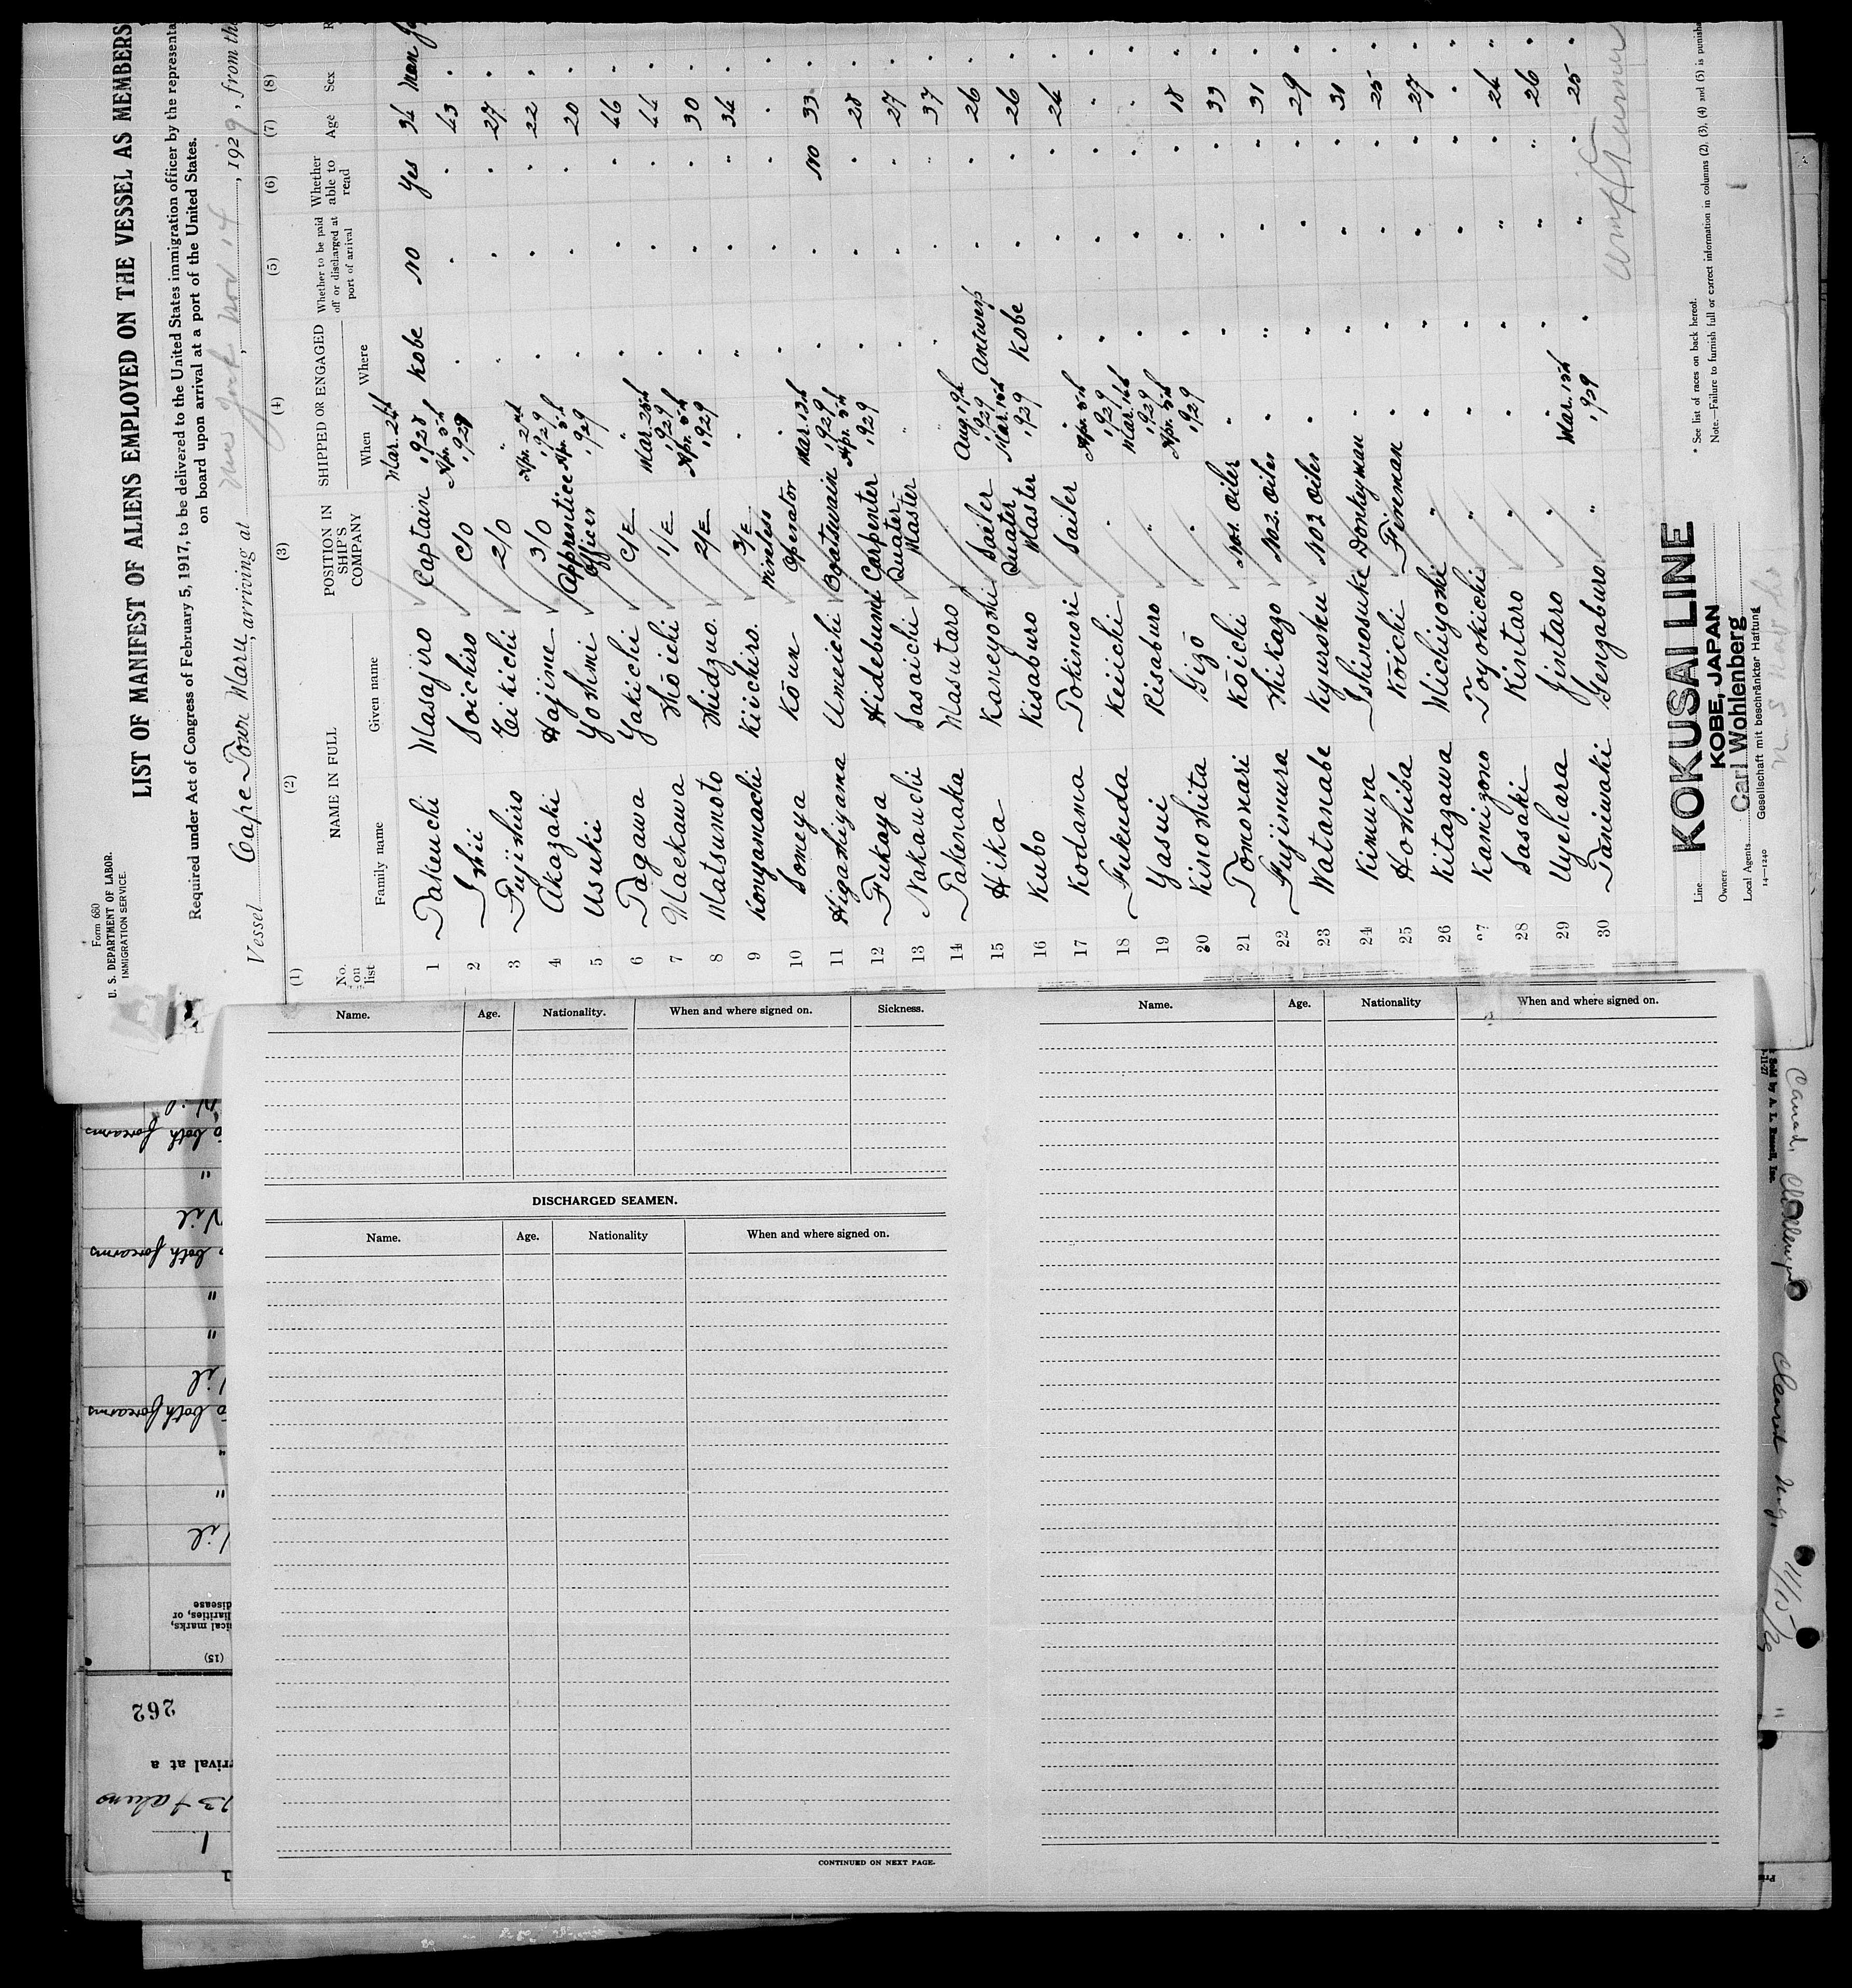 Form 680
U. S. DEPARTMENT OF LABOR.
IMMIGRATION SERVICE.
LIST OF MANIFEST OF ALIENS EMPLOYED ON THE VESSEL AS MEMBERS
Required under Act of Congress of February 5, 1917, to be delivered to the United States immigration officer by the representa
on board upon arrival at a port of the United States.
Vessel Cape Town Maru, arriving at New York, Nov 14, 1929, from th
(1) (2) (3) (4) (5) (6) (7) (8)
No. on list NAME IN FULL POSITION IN SHIP'S COMPANY SHIPPED OR ENGAGED Whether to be paid off or discharged at port of arrival Whether able to read Age Sex R
Family name Given name When Where
1 Takeuchi Masajiro Captain Mar. 24th 1928 Kobe No Yes 34 Man
2 Ishii Soichiro C/O Apr. 5th 1929 " " " 43 "
3 Fujihiro Eikichi 2/O " " " " 27 "
4 Akazaki Hajime 3/O Apr. 2nd 1929 " " " 22 "
5 Usuki Yoshimi Apprentice Officer Apr. 5th 1929 " " " 20 "
6 Tagawa Yakichi C/E " " " " 46 "
7 Maekawa Shōichi 1/E Mar. 25th 1929 " " " 44 "
8 Matsumoto Shidzuo. 2/E Apr. 5th 1929 " " " 30 "
9 Konyamachi Kiichiro. 3/E " " " " 34 "
10 Soneya Kōun Wireless Operator " " " " " "
11 Higashiyama Umeichi Boatswain Mar. 13th 1929 " " No 33 "
12 Fukaya Hidebumi Carpenter Apr. 5th 1929 " " " 28 "
13 Nakauchi Sasaichi Quater-Master " " " " 27 "
14 Takenaka Masutaro " " " " " 37 "
15 Hika Kaneyoshi Sailer Aug. 19th 1929 Antwerp " " 26 "
16 Kubo Kisaburo Quater Master Mar. 15th 1929 Kobe " " 26 "
17 Kodama Tokimori Sailer " " " " 24 "
18 Fukuda Keiichi " Apr. 5th 1929 " " " " "
19 Yasui Risaburo " Mar. 16th 1929 " " " " "
20 Kinoshita Gizō " Apr. 5th 1929 " " " 18 "
21 Tomonari Kōichi No1. Oiler " " " " 33 "
22 Fujimura Shikazo No2. Oiler " " " " 31 "
23 Watanabe Kyuroku No2 Oiler " " " " 29 "
24 Kimura Ishinosuke Donkeyman " " " " 31 "
25 Hoshiba Kōichi Fireman " " " " 25 "
26 Kitagawa Michiyoshi " " " " " 27 "
27 Kamizono Toyokichi " " " " " " "
28 Sasaki Kintaro " " " " " 24 "
29 Uyehara Jintaro " " " " " 26 "
30 Taniwaki Gengaburo " Mar. 15th 1929 " " " 25 "
Line KOKUSAI LINE
Owners KOBE, JAPAN
Local Agents Carl Wohlenberg
Gesellschaft mit beschränkter Haftung
14—1240
* See list of races on back hereof.
Note.—Failure to furnish full or correct information in columns (2), (3), (4) and (5) is punisha
Name. Age. Nationality. When and where signed on. Sickness.
DISCHARGED SEAMEN.
Name. Age. Nationality When and where signed on.
CONTINUED ON NEXT PAGE.
Name. Age. Nationality When and where signed on.
both forearms
"
Nil
both forearms
"
"
both forearms
"
"
ical marks,
liarities, or
disease
(15)
262
rival at a
Sold by A. L. Russell, Inc.
Cleared